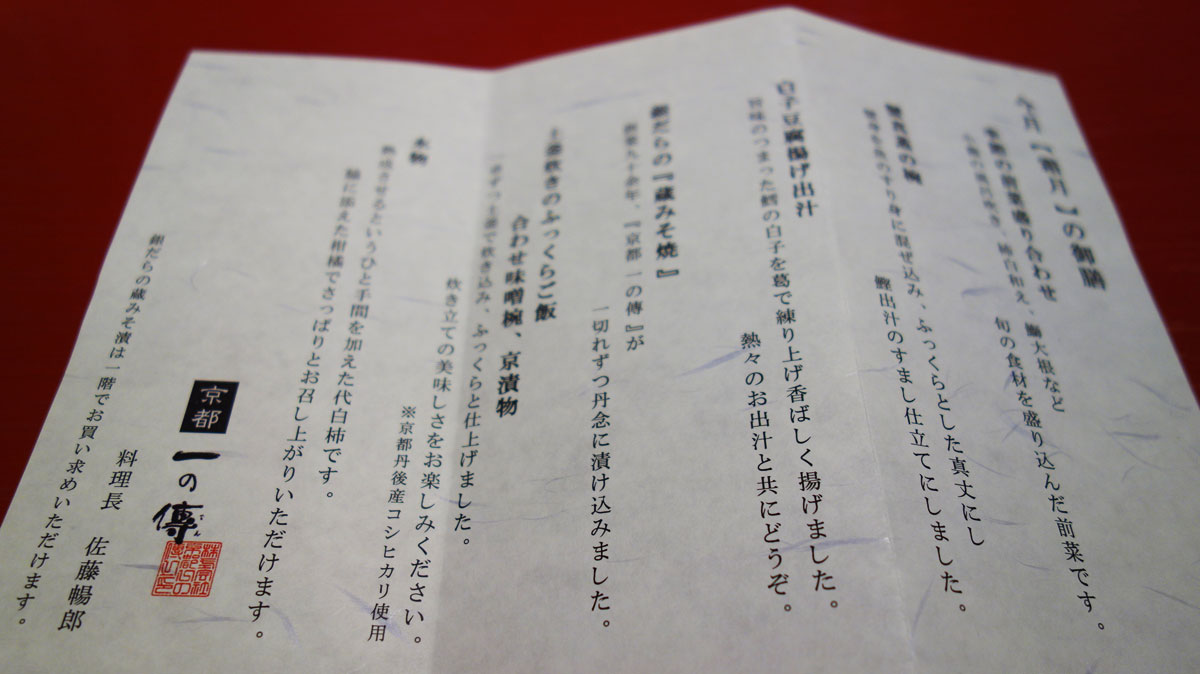 今月『霜月』の御膳
季節の前菜盛り合わせ
柿白和え、鰤大根など
旬の食材を盛り込んだ前菜です。
すり身に混ぜ込み、ふっくらとした真丈にし
鰹出汁のすまし仕立てにしました。
白子豆腐揚げ出汁
旨味のつまった鱈の白子を葛で練り上げ香ばしく揚げました。
熱々のお出汁と共にどうぞ。
銀だらの『蔵みそ焼』
『京都一の傳』が
一切れずつ丹念に漬け込みました。
土釜炊きのふっくらご飯
合わせ味噌椀、京漬物
ずつ土釜で炊き込み、ふっくらと仕上げました。
炊き立ての美味しさをお楽しみください。
※京都丹後産コシヒカリ使用
水物
熟成させるというひと手間を加えた代白柿です。
脇に添えた柑橘でさっぱりとお召し上がりいただけます。
京都
一の傳
でん
料理長 佐藤暢郎
銀だらの蔵みそ漬は一階でお買い求めいただけます。